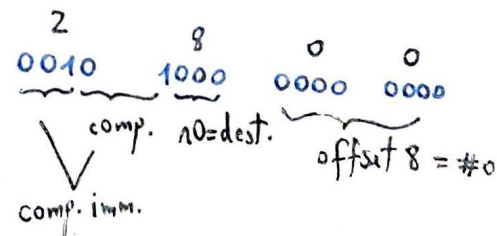 2 8 0 0
0010 1000 0000 0000
comp. r0=dest. offset 8 = #0
comp. imm.